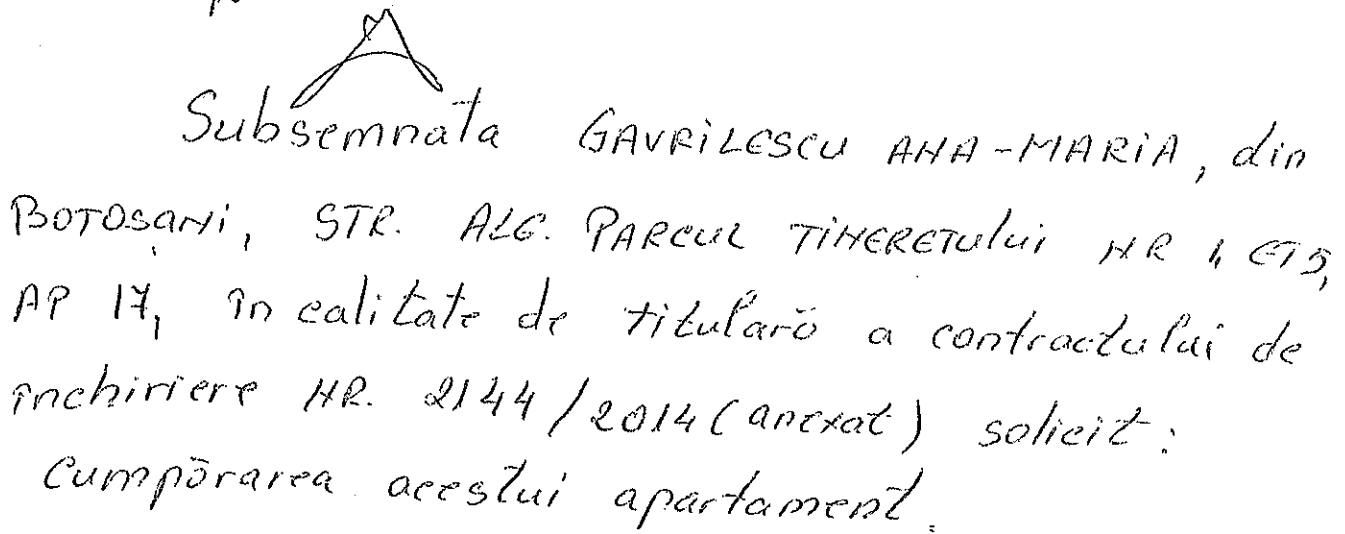 Subsemnata GAVRILESCU ANA-MARIA, din
BOTOȘANI, STR. ALE. PARCUL TINERETULUI NR 1, ET 5,
AP 17, în calitate de titulară a contractului de
închiriere NR. 2144/2014 (anexat) solicit:
Cumpărarea acestui apartament.